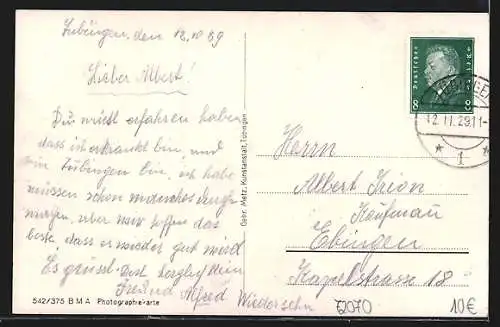 Tübingen, den 12.10 29
Lieber Albert!
Du wirst erfahren haben
dass ich erkrankt bin, und
in Tübingen bin, ich habe
müssen schon manches
aber wir hoffen das
beste, dass es wieder gut wird
Es grüsst Dich herzlich dein
Freund Alfred Wiedersehn
542/375 B M A Photographiekarte
Gebr. Metz, Kunstanstalt, Tübingen
Deutsches Reich
8 8
12.11.29.11-
* 1 *
Herrn
Albert
Kaufmann
Ebingen
Kapellstrasse 18
72070
10€